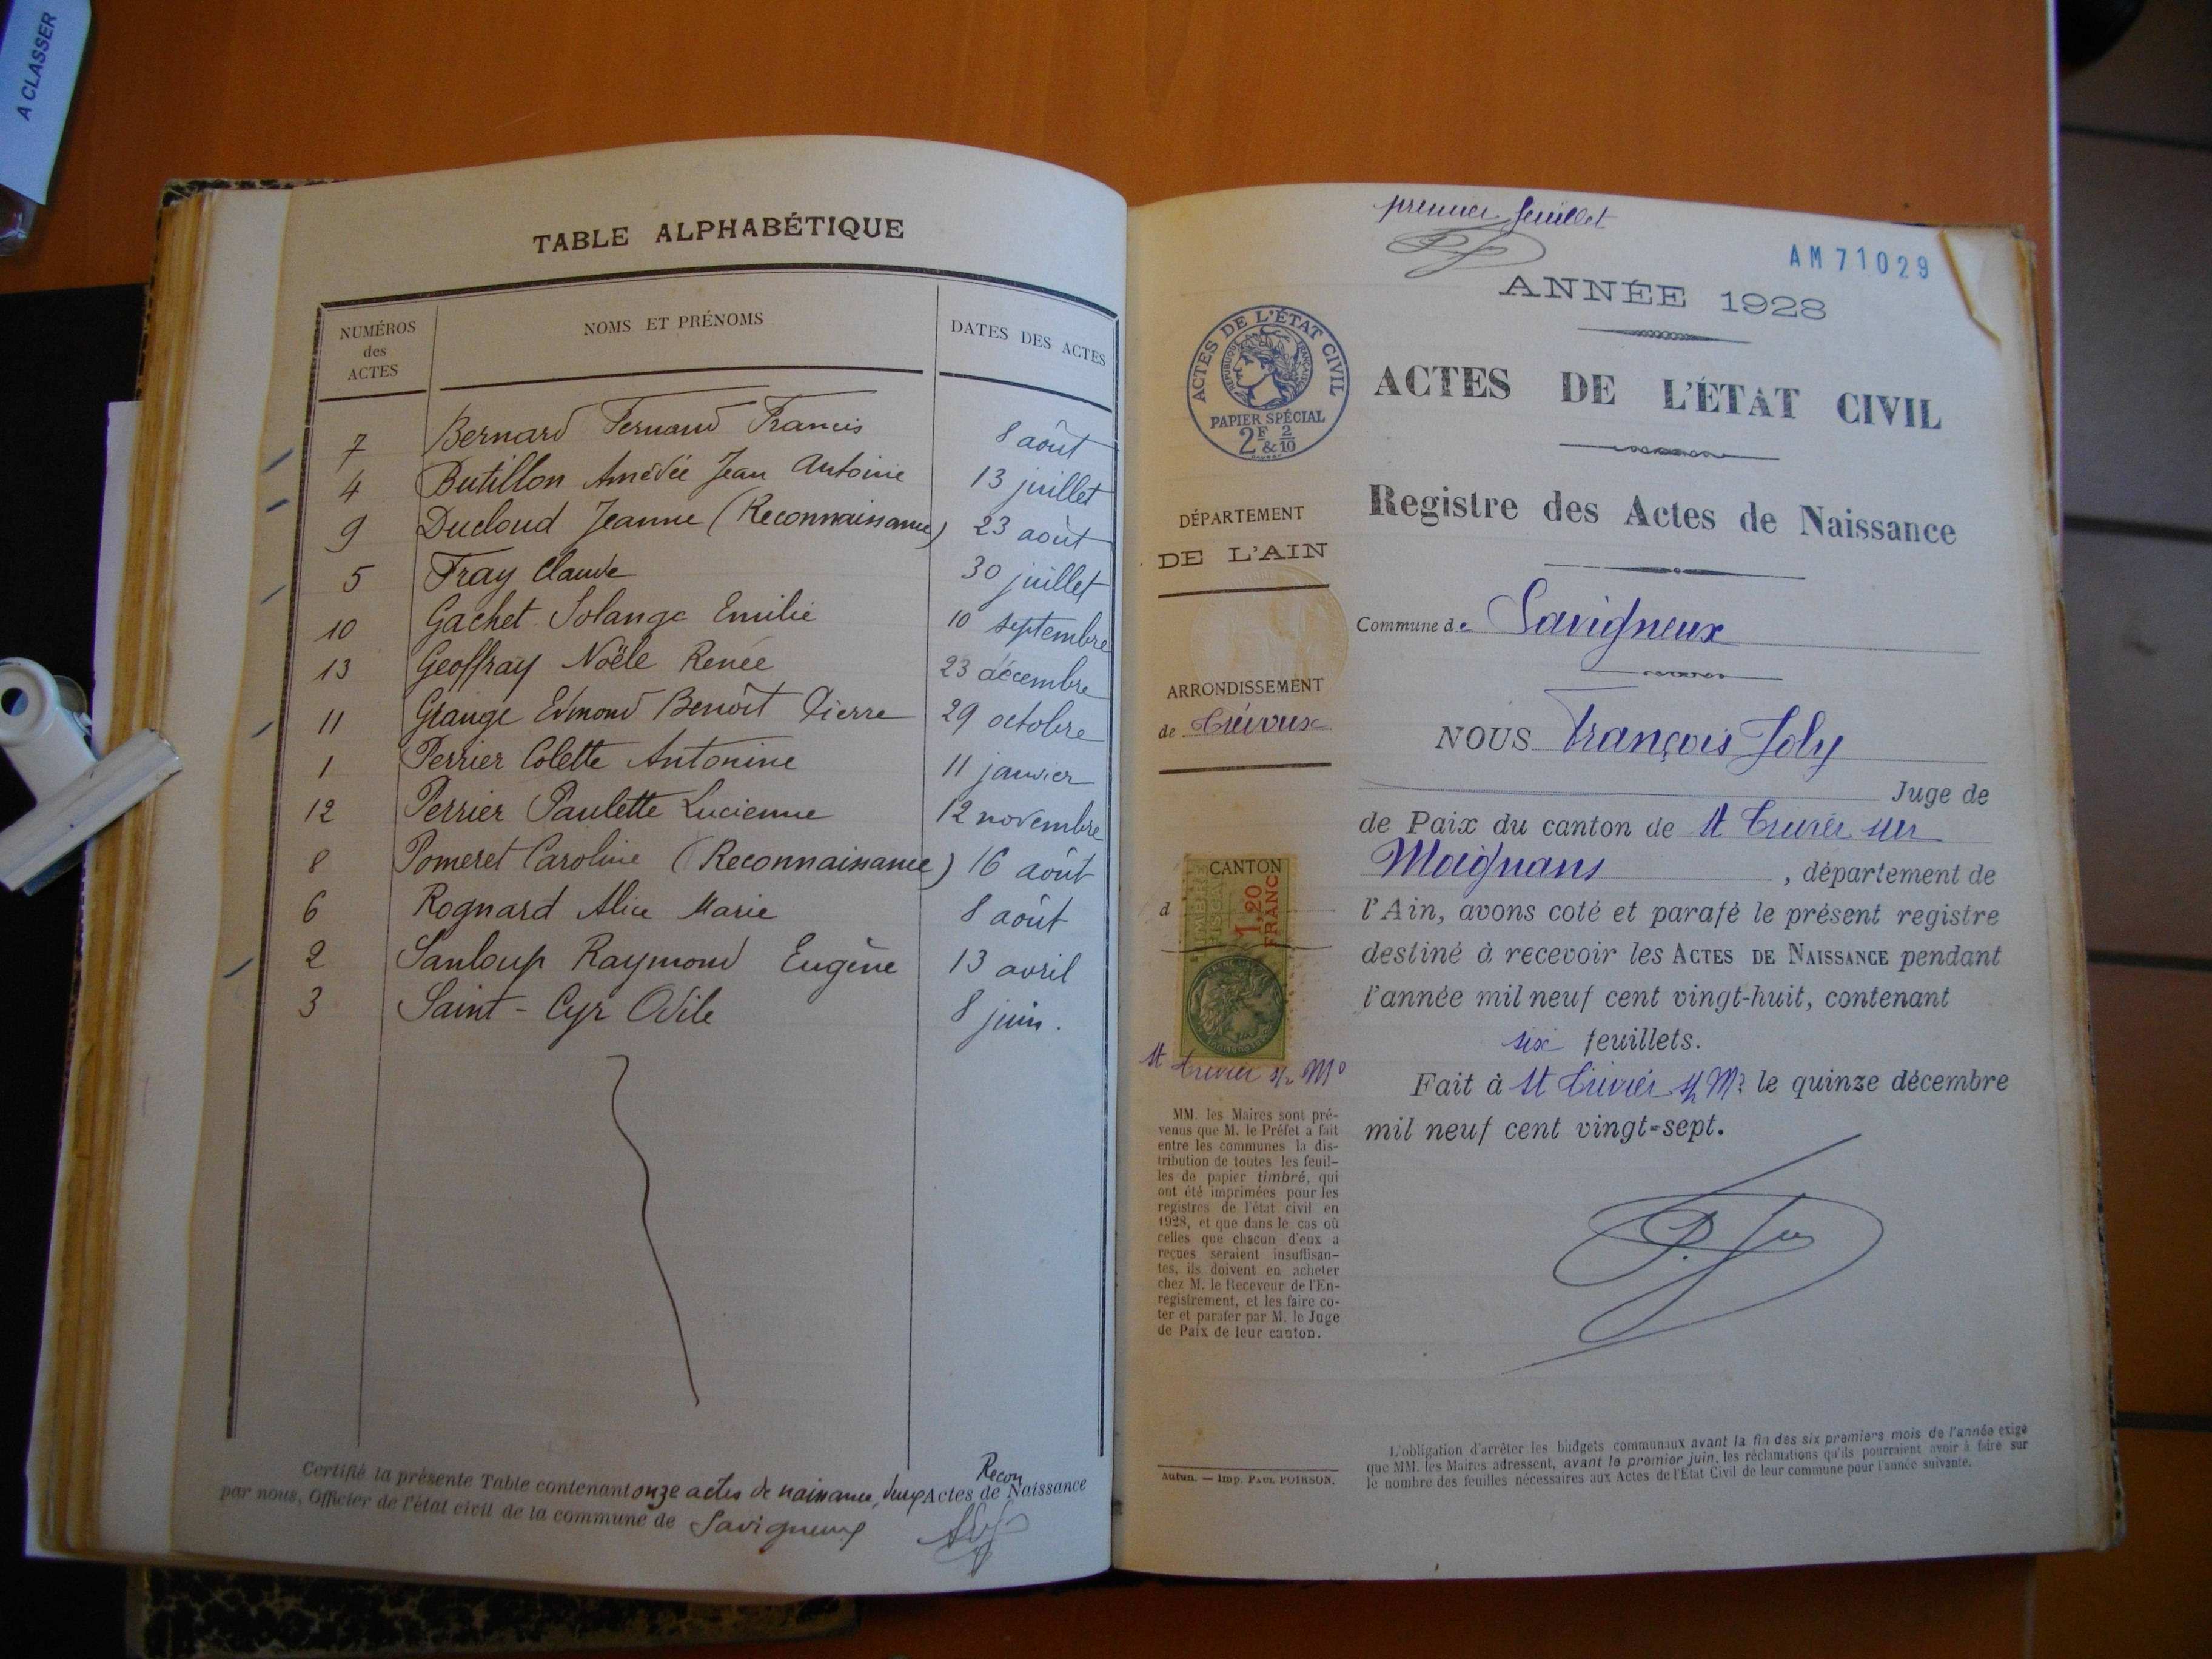 A CLASSER
TABLE ALPHABÉTIQUE
NUMÉROS des ACTES NOMS ET PRÉNOMS DATES DES ACTES
7 Bernard Fernand Francis 8 août
4 Butillon Amédée Jean Antoine 13 juillet
9 Ducloud Jeanne (Reconnaissance) 23 août
5 Fray Claude 30 juillet
10 Gachet Solange Emilie 10 septembre
13 Geoffray Noële Renée 23 décembre
11 Grange Edmond Benoît Pierre 29 octobre
1 Perrier Colette Antonine 11 janvier
12 Perrier Paulette Lucienne 12 novembre
8 Pomeret Caroline (Reconnaissance) 16 août
6 Rognard Alice Marie 8 août
2 Sanloup Raymond Eugène 13 avril
3 Saint-Cyr Odile 8 juin.
Recon
Certifié la présente Table contenant onze actes de naissance, deux Actes de Naissance
par nous, Officier de l'état civil de la commune de Savigneux
premier feuillet
AM 71029
ANNÉE 1928
ACTES DE L'ÉTAT CIVIL
RÉPUBLIQUE FRANÇAISE
PAPIER SPÉCIAL
2F & 2/10
ACTES DE L'ÉTAT CIVIL
Registre des Actes de Naissance
DÉPARTEMENT
DE L'AIN
Commune de Savigneux
ARRONDISSEMENT
de Trévoux
NOUS François Joly
Juge de
de Paix du canton de St Trivier sur
Moignans, département de
l'Ain, avons coté et parafé le présent registre
destiné à recevoir les ACTES DE NAISSANCE pendant
l'année mil neuf cent vingt-huit, contenant
six feuillets.
Fait à St Trivier s/ M? le quinze décembre
mil neuf cent vingt-sept.
CANTON
TIMBRE FISCAL
1,20
FRANC
d
St Trivier s/r Mo
MM. les Maires sont pré-
venus que M. le Préfet a fait
entre les communes la dis-
tribution de toutes les feuil-
les de papier timbré, qui
ont été imprimées pour les
registres de l'état civil en
1928, et que dans le cas où
celles que chacun d'eux a
reçues seraient insuffisan-
tes, ils doivent en acheter
chez M. le Receveur de l'En-
registrement, et les faire co-
ter et parafer par M. le Juge
de Paix de leur canton.
Autun. — Imp. PAUL POIRSON.
L'obligation d'arrêter les budgets communaux avant la fin des six premiers mois de l'année exige
que MM. les Maires adressent, avant le premier juin, les réclamations qu'ils pourraient avoir à faire sur
le nombre des feuilles nécessaires aux Actes de l'État Civil de leur commune pour l'année suivante.